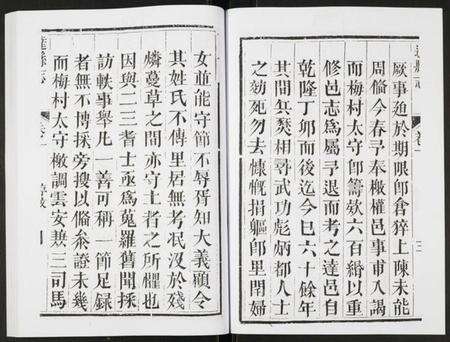 厥事廹於期限卽倉猝上陳未能
周備今春予奉檄權邑事甫入謁
而梅村太守卽籌欵六百緡以重
修邑志爲屬予退而考之達邑自
乾隆丁卯而後迄今巳六十餘年
其間兵燹相尋武功彪炳都人士
之効死勿去慷慨捐軀卽里閈婦
女並能守節不辱胥知大義顧令
其姓氏不傳里居無考泯没於殘
燐蔓草之間亦守土者之所懼也
因與二三耆士亟爲蒐羅舊聞採
訪軼事舉凡一善可稱一節足録
者無不博採旁搜以備叅證未幾
而梅村太守檄調雲安兼三司馬